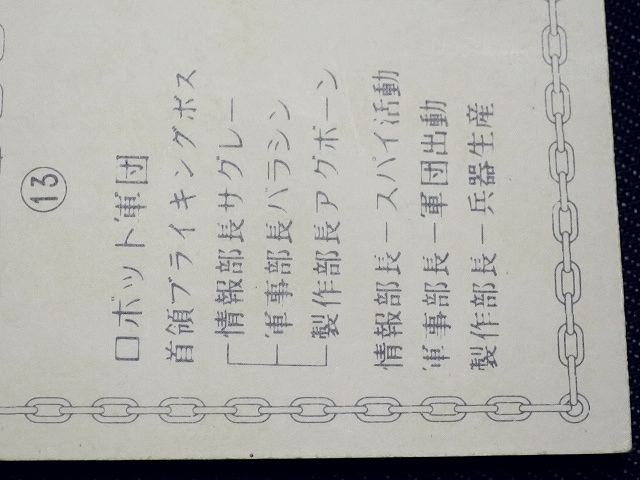 ⑬
ロボット軍団
首領ブライキングボス
情報部長サグレー
軍事部長バラシン
製作部長アグボーン
情報部長－スパイ活動
軍事部長－軍団出動
製作部長－兵器生産